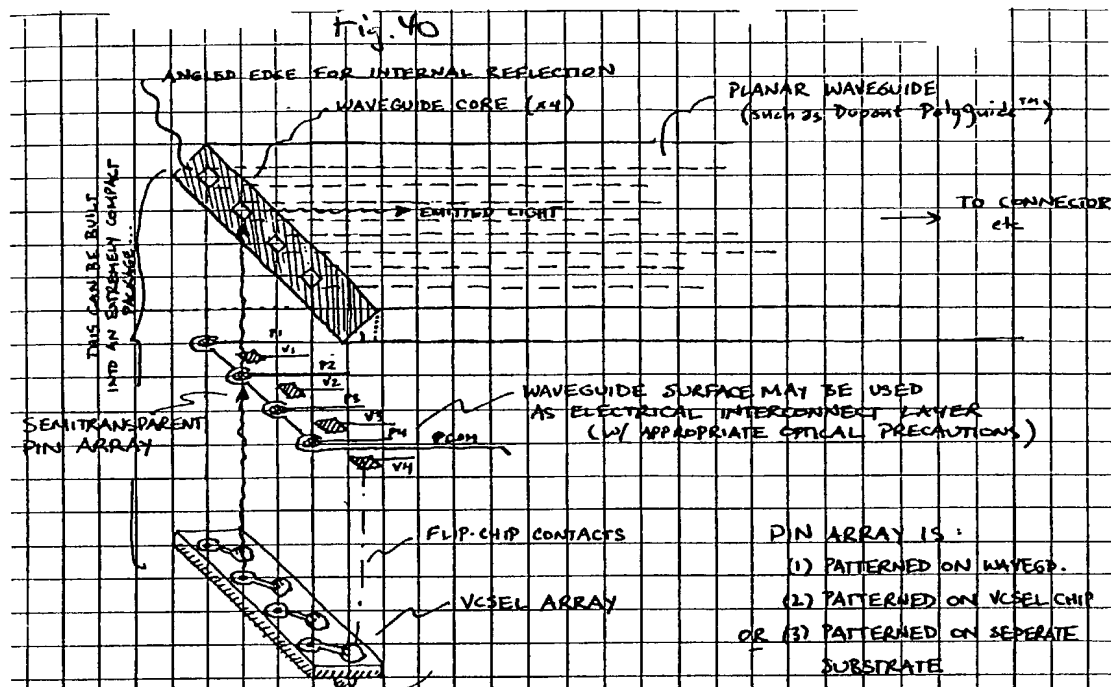 Fig. 40
ANGLED EDGE FOR INTERNAL REFLECTION
WAVEGUIDE CORE (x4)
PLANAR WAVEGUIDE
(such as Dupont Polyguide™)
THIS CAN BE BUILT
INTO AN EXTREMELY COMPACT
PACKAGE...
EMITTED LIGHT
TO CONNECTOR
etc
P1
V1
P2
V2
P3
V3
P4
PCOM
V4
SEMITRANSPARENT
PIN ARRAY
WAVEGUIDE SURFACE MAY BE USED
AS ELECTRICAL INTERCONNECT LAYER
(W/ APPROPRIATE OPTICAL PRECAUTIONS)
FLIP-CHIP CONTACTS
VCSEL ARRAY
PIN ARRAY IS:
(1) PATTERNED ON WAVEGD.
(2) PATTERNED ON VCSEL CHIP
OR (3) PATTERNED ON SEPERATE
SUBSTRATE